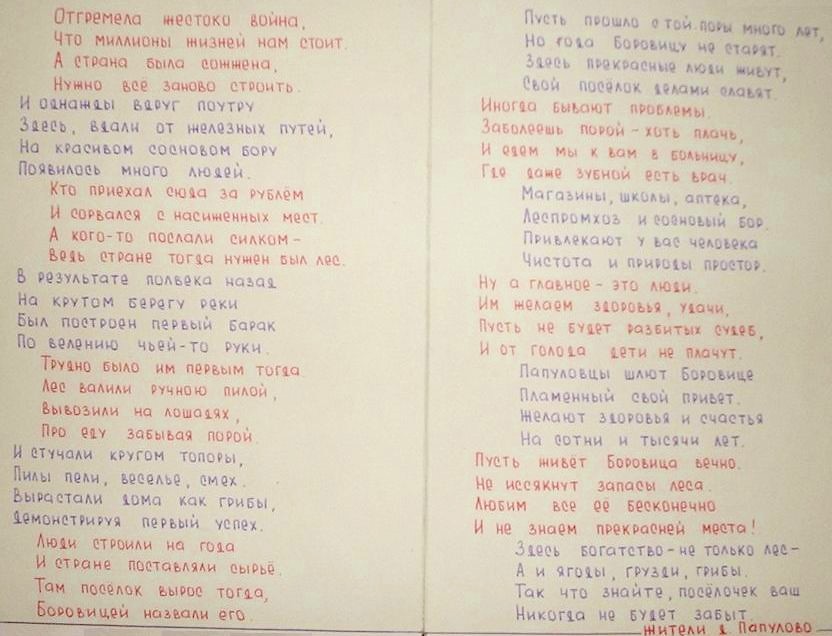 Отгремела жестоко война,
Что миллионы жизней нам стоит.
А страна была сожжена,
Нужно всё заново строить.
И однажды вдруг поутру
Здесь, вдали от железных путей,
На красивом сосновом бору
Появилось много людей.
Кто приехал сюда за рублём
И сорвался с насиженных мест.
А кого-то послали силком –
Ведь стране тогда нужен был лес.
В результате полвека назад
На крутом берегу реки
Был построен первый барак
По велению чьей-то руки.
Трудно было им первым тогда.
Лес валили ручною пилой,
Вывозили на лошадях,
Про еду забывая порой.
И стучали кругом топоры,
Пилы пели, веселье, смех.
Вырастали дома как грибы,
Демонстрируя первый успех.
Люди строили на года
И стране поставляли сырьё.
Там посёлок вырос тогда,
Боровицей назвали его.
Пусть прошло с той поры много лет,
Но года Боровицу не старят.
Здесь прекрасные люди живут,
Свой посёлок делами славят.
Иногда бывают проблемы.
Заболеешь порой – хоть плачь,
И едем мы к вам в больницу,
Где даже зубной есть врач.
Магазины, школы, аптека,
Леспромхоз и сосновый бор.
Привлекают у вас человека
Чистота и природы простор.
Ну а главное – это люди.
Им желаем здоровья, удачи,
Пусть не будет разбитых судеб,
И от голода дети не плачут.
Папуловцы шлют Боровице
Пламенный свой привет.
Желают здоровья и счастья
На сотни и тысячи лет.
Пусть живёт Боровица вечно.
Не иссякнут запасы леса.
Любим все её бесконечно
И не знаем прекрасней места!
Здесь богатство – не только лес –
А и ягоды, грузди, грибы.
Так что знайте, посёлочек ваш
Никогда не будет забыт.
Жители д. Папулово